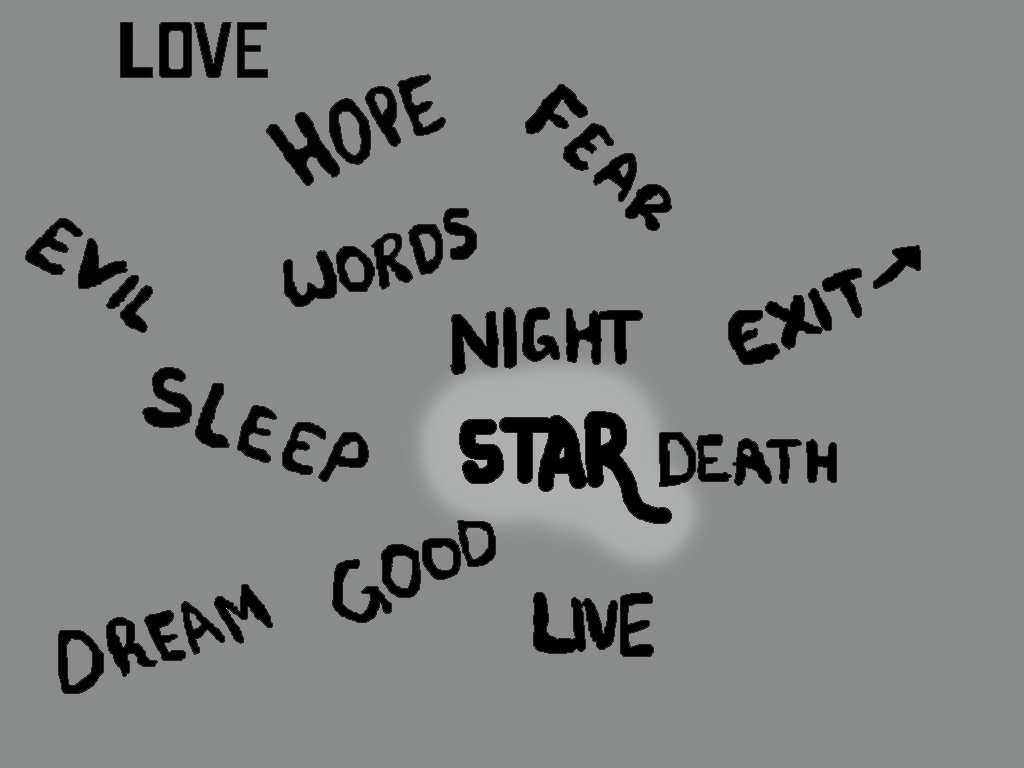 LOVE
HOPE
FEAR
EVIL
WORDS
NIGHT
EXIT →
SLEEP
STAR
DEATH
GOOD
DREAM
LIVE